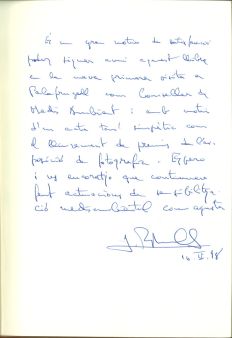 És un gran motiu de satisfacció
poder signar avui aquest llibre
a la meva primera visita a
Palafrugell com Conseller de
Medi Ambient i amb motiu
d'un acte tan simpàtic com
el lliurament de premis de l'ex-
posició de fotografia. Espero
i us encoratjo que continueu
fent actuacions de sensibilitza-
ció mediambiental com aquesta